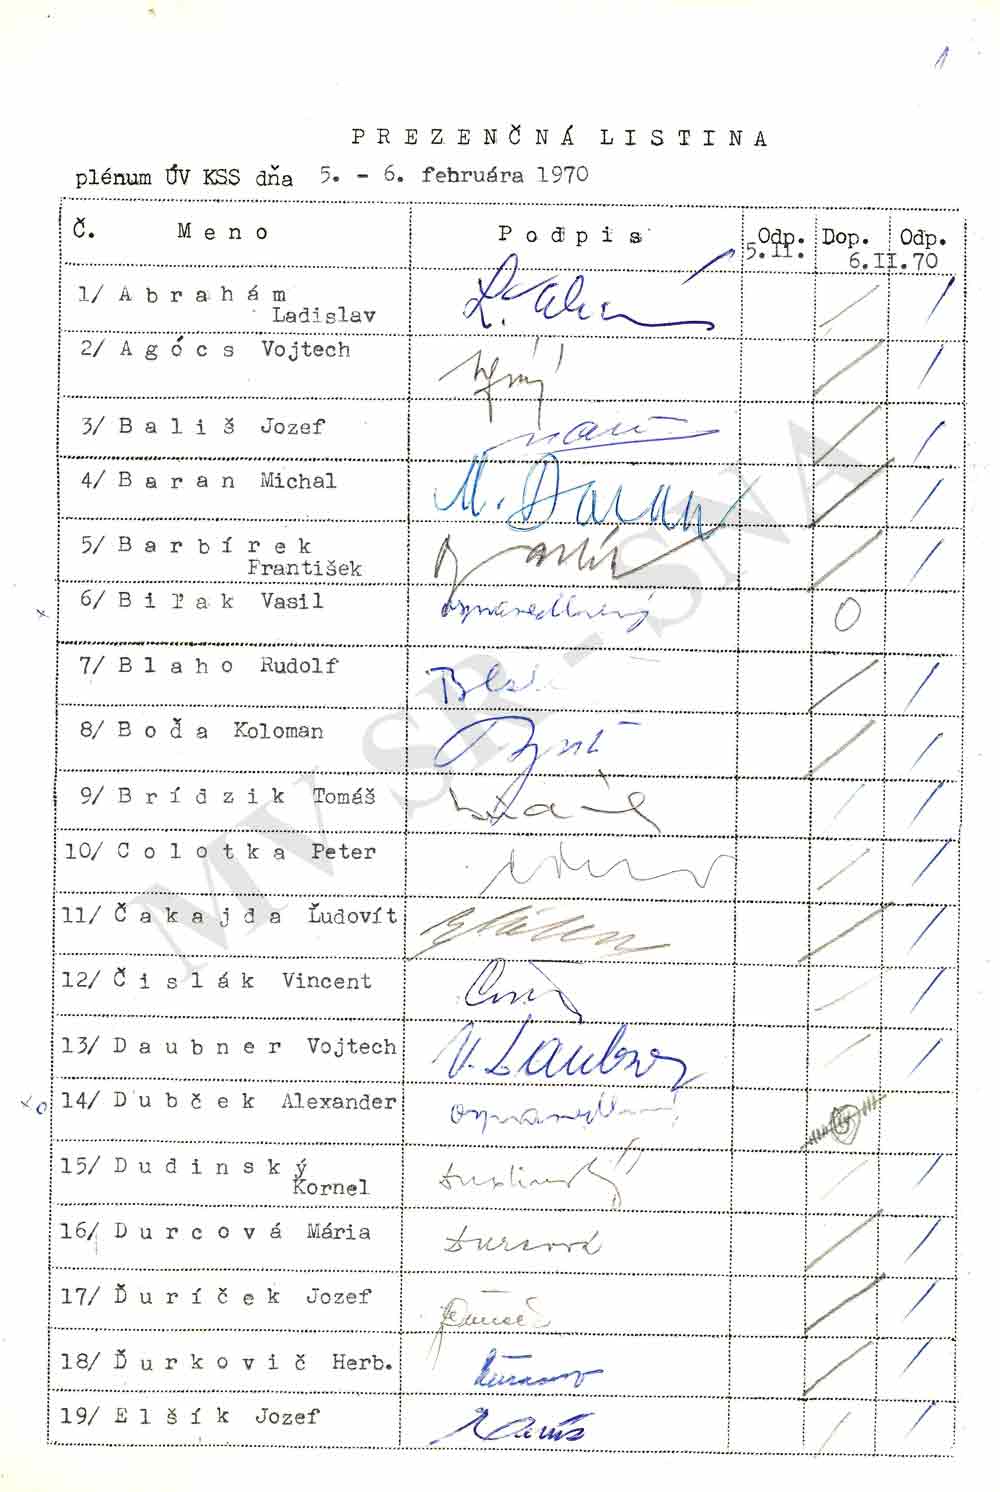 1
PREZENČNÁ LISTINA
plénum ÚV KSS dňa 5. - 6. februára 1970
Č. Meno Podpis Odp. Dop. Odp.
5.II. 6.II.70
1/ Abrahám
Ladislav
2/ Agócs Vojtech
3/ Bališ Jozef
4/ Baran Michal M. Baran
5/ Barbírek
František
x 6/ Biľak Vasil ospravedlnený O
7/ Blaho Rudolf
8/ Boďa Koloman
9/ Brídzik Tomáš
10/ Colotka Peter
11/ Čakajda Ľudovít
12/ Čislák Vincent
13/ Daubner Vojtech V. Daubner
xo 14/ Dubček Alexander ospravedlnený
15/ Dudinský
Kornel Dudinský
16/ Durcová Mária Durcová
17/ Ďuríček Jozef
18/ Ďurkovič Herb.
19/ Elšík Jozef
MV SR - SNA